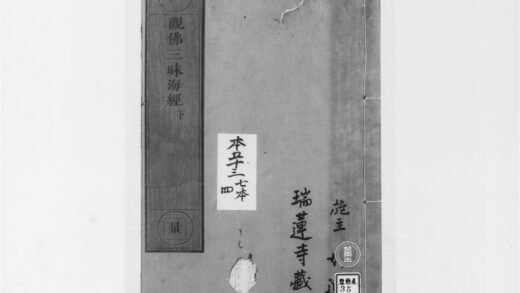 觀佛三昧海經下
量
本五十三
七本
四
施主
瑞蓮寺藏
禁出